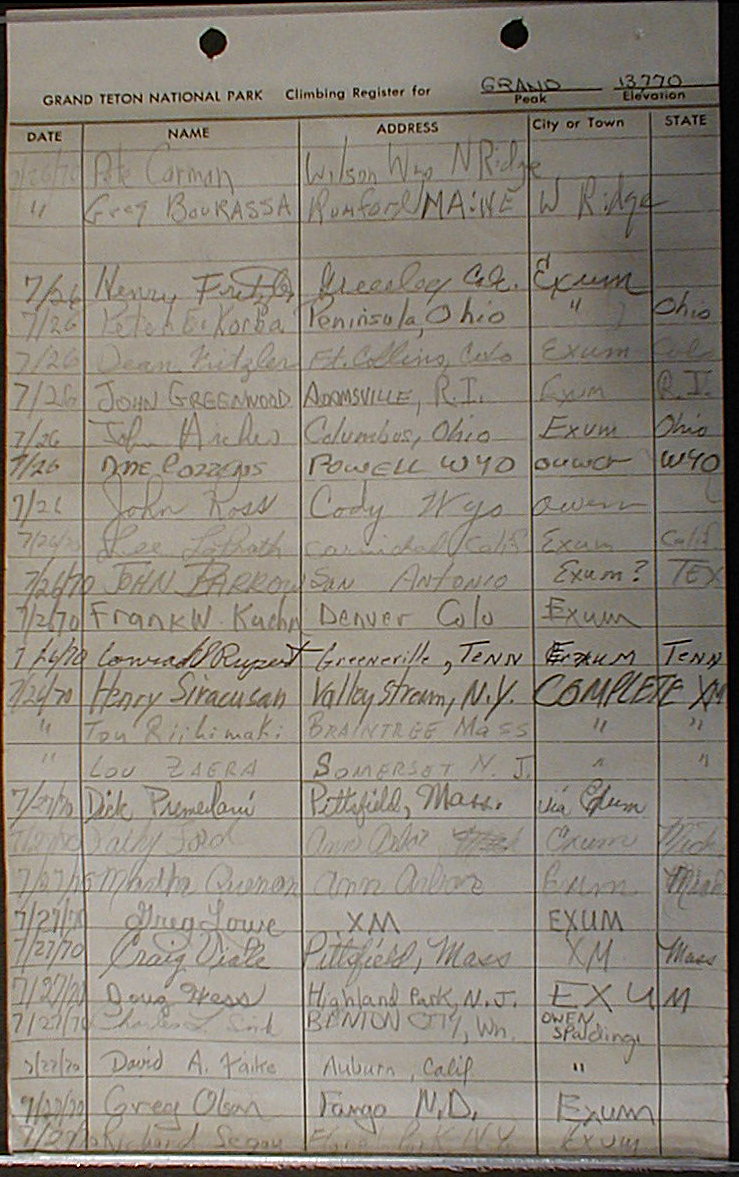 GRAND TETON NATIONAL PARK Climbing Register for GRAND 13,770
Peak Elevation
DATE NAME ADDRESS City or Town STATE
7/26/70 Pete Carman Wilson Wyo N Ridge
" Greg BOURASSA Rumford MAINE W Ridge
7/26 Henry Greeley Exum
7/26 Peter Peninsula, Ohio " Ohio
7/26 Dean Fitzler Ft. Collins, Colo Exum Colo
7/26 JOHN GREENWOOD ADAMSVILLE, R.I. Exum R.I.
7/26 John Columbus, Ohio Exum Ohio
7/26 COZZENS POWELL WYO WYO
7/26 John Ross Cody Wyo Owen
7/26/70 Lee Calif Exum Calif
7/26/70 JOHN BARROW SAN ANTONIO Exum? TEX
7/26/70 Frank W. Kuehn Denver Colo Exum
7/26/70 Conrad Rupert Greeneville, TENN EXUM TENN
7/26/70 Henry Siracusan Valley Stream, N.Y. COMPLETE XM
" Tom Riihimaki BRAINTREE MASS " "
" LOU ZAERA SOMERSET N.J. " "
7/27/70 Dick Pittsfield, Mass. via Exum
7/27/70 Ford Ann Arbor Exum Mich
7/27/70 Martha Ann Arbor Exum Mich
7/27/70 Greg Lowe XM EXUM
7/27/70 Craig Viale Pittsfield, Mass XM Mass
7/27/70 Doug Hess Highland Park, N.J. EXUM
7/27/70 Charles L. Sink BENTON CITY, Wn. OWEN
Spalding
7/27/70 David A. Auburn, Calif "
7/27/70 Greg Olson Fargo N.D. Exum
7/27/70 Richard Segan Park N.Y. Exum